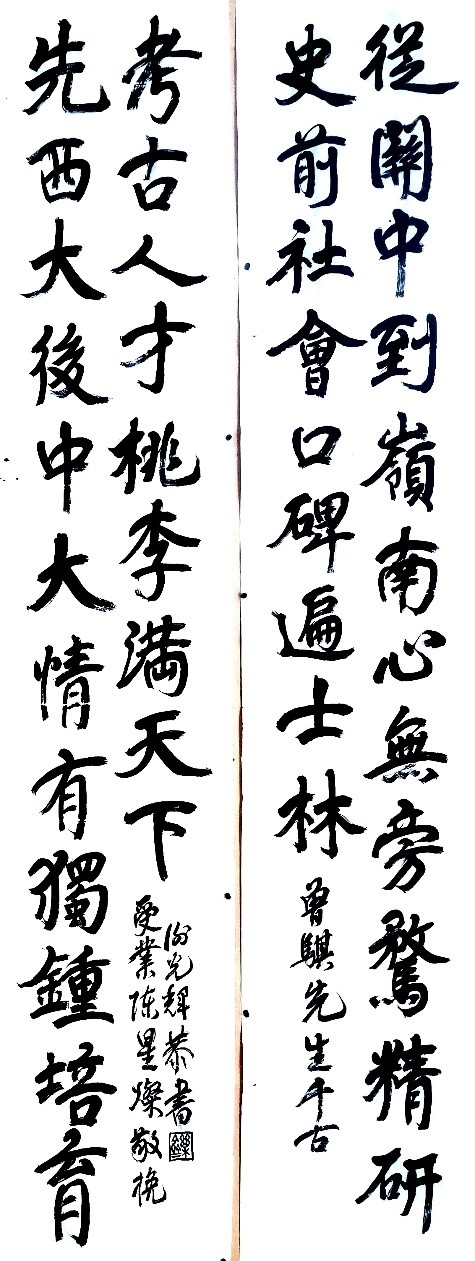 從關中到嶺南心無旁騖精研
史前社會口碑遍士林
曾騏先生千古
先西大後中大情有獨鍾培育
考古人才桃李満天下
受業陈星燦敬挽
谢光輝恭書